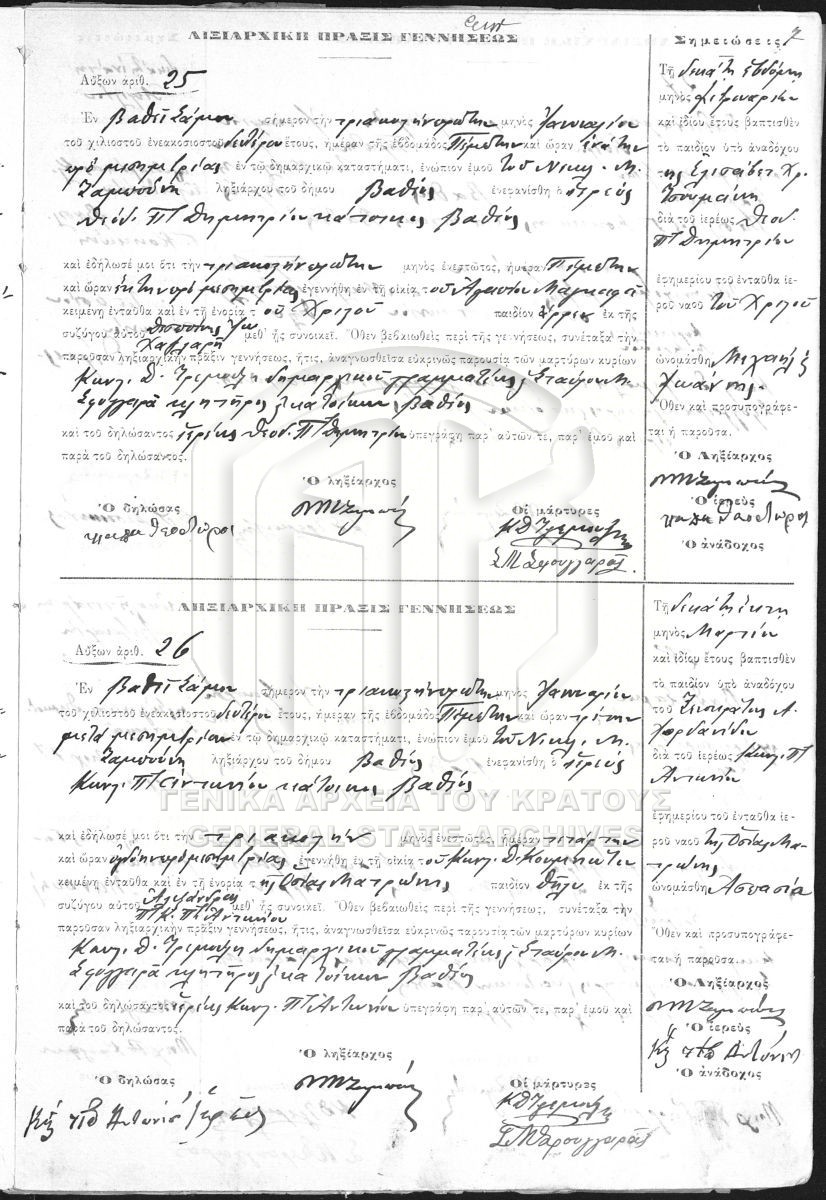 7
ΛΗΞΙΑΡΧΙΚΗ ΠΡΑΞΙΣ ΓΕΝΝΗΣΕΩΣ
Αὔξων ἀριθ. 25
Ἐν Βαθεῖ Σάμου σήμερον τὴν τριακοστὴν πρώτην μηνὸς Ἰανουαρίου
τοῦ χιλιοστοῦ ἐνεακοσιοστοῦ δευτέρου ἔτους, ἡμέραν τῆς ἑβδομάδος Πέμπτην καὶ ὥραν ἐνάτην
πρὸ μεσημβρίας ἐν τῷ δημαρχικῷ καταστήματι, ἐνώπιον ἐμοῦ τοῦ Νικ. Μ.
Ζαμπούνη ληξιάρχου τοῦ δήμου Βαθέος ἐνεφανίσθη ὁ ἱερεὺς
Θεόδ. Π. Δημητρίου κάτοικος Βαθέος
καὶ ἐδήλωσέ μοι ὅτι τὴν τριακοστὴν πρώτην μηνὸς ἐνεστῶτος, ἡμέραν Πέμπτην
καὶ ὥραν ἕκτην πρὸ μεσημβρίας ἐγεννήθη ἐν τῇ οἰκίᾳ τοῦ
κειμένῃ ἐνταῦθα καὶ ἐν τῇ ἐνορίᾳ τοῦ Χριστοῦ παιδίον ἄρρεν ἐκ τῆς
συζύγου αὐτοῦ μεθ' ἧς συνοικεῖ. Ὅθεν βεβαιωθεὶς περὶ τῆς γεννήσεως, συνέταξα τὴν
παροῦσαν ληξιαρχικὴν πρᾶξιν γεννήσεως, ἥτις, ἀναγνωσθεῖσα εὐκρινῶς παρουσίᾳ τῶν μαρτύρων κυρίων
Κωνσ. Δ. δημαρχικοῦ γραμματέως ξ Σταύρου Μ.
Σφουγγαρᾶ κλητῆρος ξ κατοίκων Βαθέος
καὶ τοῦ δηλώσαντος ἱερέως Θεοδ. Π. Δημητρίου ὑπεγράφη παρ' αὐτῶν τε, παρ' ἐμοῦ καὶ
παρὰ τοῦ δηλώσαντος.
Ὁ ληξίαρχος
Ὁ δηλώσας
Οἱ μάρτυρες
Σ Μ Σφουγγαρᾶς
Σημειώσεις
Τῇ δεκάτῃ ἑβδόμῃ
μηνὸς Φεβρουαρίου
καὶ ἰδίου ἔτους βαπτισθὲν
τὸ παιδίον ὑπὸ ἀναδόχου
τῆς Ἐλισάβετ Χρ.
διὰ τοῦ ἱερέως Θεοδ.
Π. Δημητρίου
ἐφημερίου τοῦ ἐνταῦθα ἱε-
ροῦ ναοῦ τοῦ Χριστοῦ
ὠνομάσθη Μιχαὴλ ξ
Ἰωάννης.
Ὅθεν καὶ προσυπογράφε-
ται ἡ παροῦσα.
Ὁ Ληξίαρχος
Ὁ ἱερεὺς
Ὁ ἀνάδοχος
ΛΗΞΙΑΡΧΙΚΗ ΠΡΑΞΙΣ ΓΕΝΝΗΣΕΩΣ
Αὔξων ἀριθ. 26
Ἐν Βαθεῖ Σάμου σήμερον τὴν τριακοστὴν πρώτην μηνὸς Ἰανουαρίου
τοῦ χιλιοστοῦ ἐνεακοσιοστοῦ δευτέρου ἔτους, ἡμέραν τῆς ἑβδομάδος Πέμπτην καὶ ὥραν τρίτην
μετὰ μεσημβρίαν ἐν τῷ δημαρχικῷ καταστήματι, ἐνώπιον ἐμοῦ τοῦ Νικ. Μ.
Ζαμπούνη ληξιάρχου τοῦ δήμου Βαθέος ἐνεφανίσθη ὁ ἱερεὺς
Κωνσ. Π. Ἀντωνίου κάτοικος Βαθέος
ΓΕΝΙΚΑ ΑΡΧΕΙΑ ΤΟΥ ΚΡΑΤΟΥΣ
GENERAL STATE ARCHIVES
καὶ ἐδήλωσέ μοι ὅτι τὴν τριακοστὴν μηνὸς ἐνεστῶτος, ἡμέραν τετάρτην
καὶ ὥραν ὀγδόην πρὸ μεσημβρίας ἐγεννήθη ἐν τῇ οἰκίᾳ τοῦ Κωνσ. Δ.
κειμένῃ ἐνταῦθα καὶ ἐν τῇ ἐνορίᾳ τῆς Ὁσίας Ματρώνης παιδίον θῆλυ ἐκ τῆς
συζύγου αὐτοῦ Ἀλεξάνδρας Π. Κ. Π. Ἀντωνίου μεθ' ἧς συνοικεῖ. Ὅθεν βεβαιωθεὶς περὶ τῆς γεννήσεως, συνέταξα τὴν
παροῦσαν ληξιαρχικὴν πρᾶξιν γεννήσεως, ἥτις, ἀναγνωσθεῖσα εὐκρινῶς παρουσίᾳ τῶν μαρτύρων κυρίων
Κωνσ. Δ. δημαρχικοῦ γραμματέως ξ Σταύρου Μ.
Σφουγγαρᾶ κλητῆρος ξ κατοίκων Βαθέος
καὶ τοῦ δηλώσαντος ἱερέως Κωνσ. Π. Ἀντωνίου ὑπεγράφη παρ' αὐτῶν τε, παρ' ἐμοῦ καὶ
παρὰ τοῦ δηλώσαντος.
Ὁ ληξίαρχος
Ὁ δηλώσας
Οἱ μάρτυρες
Τῇ δεκάτῃ ἕκτῃ
μηνὸς Μαρτίου
καὶ ἰδίου ἔτους βαπτισθὲν
τὸ παιδίον ὑπὸ ἀναδόχου
διὰ τοῦ ἱερέως Κωνσ. Π.
Ἀντωνίου
ἐφημερίου τοῦ ἐνταῦθα ἱε-
ροῦ ναοῦ τῆς Ὁσίας Μα-
τρώνης
ὠνομάσθη Ἀσπασία
Ὅθεν καὶ προσυπογράφε-
ται ἡ παροῦσα.
Ὁ Ληξίαρχος
Ὁ ἱερεὺς
Ὁ ἀνάδοχος